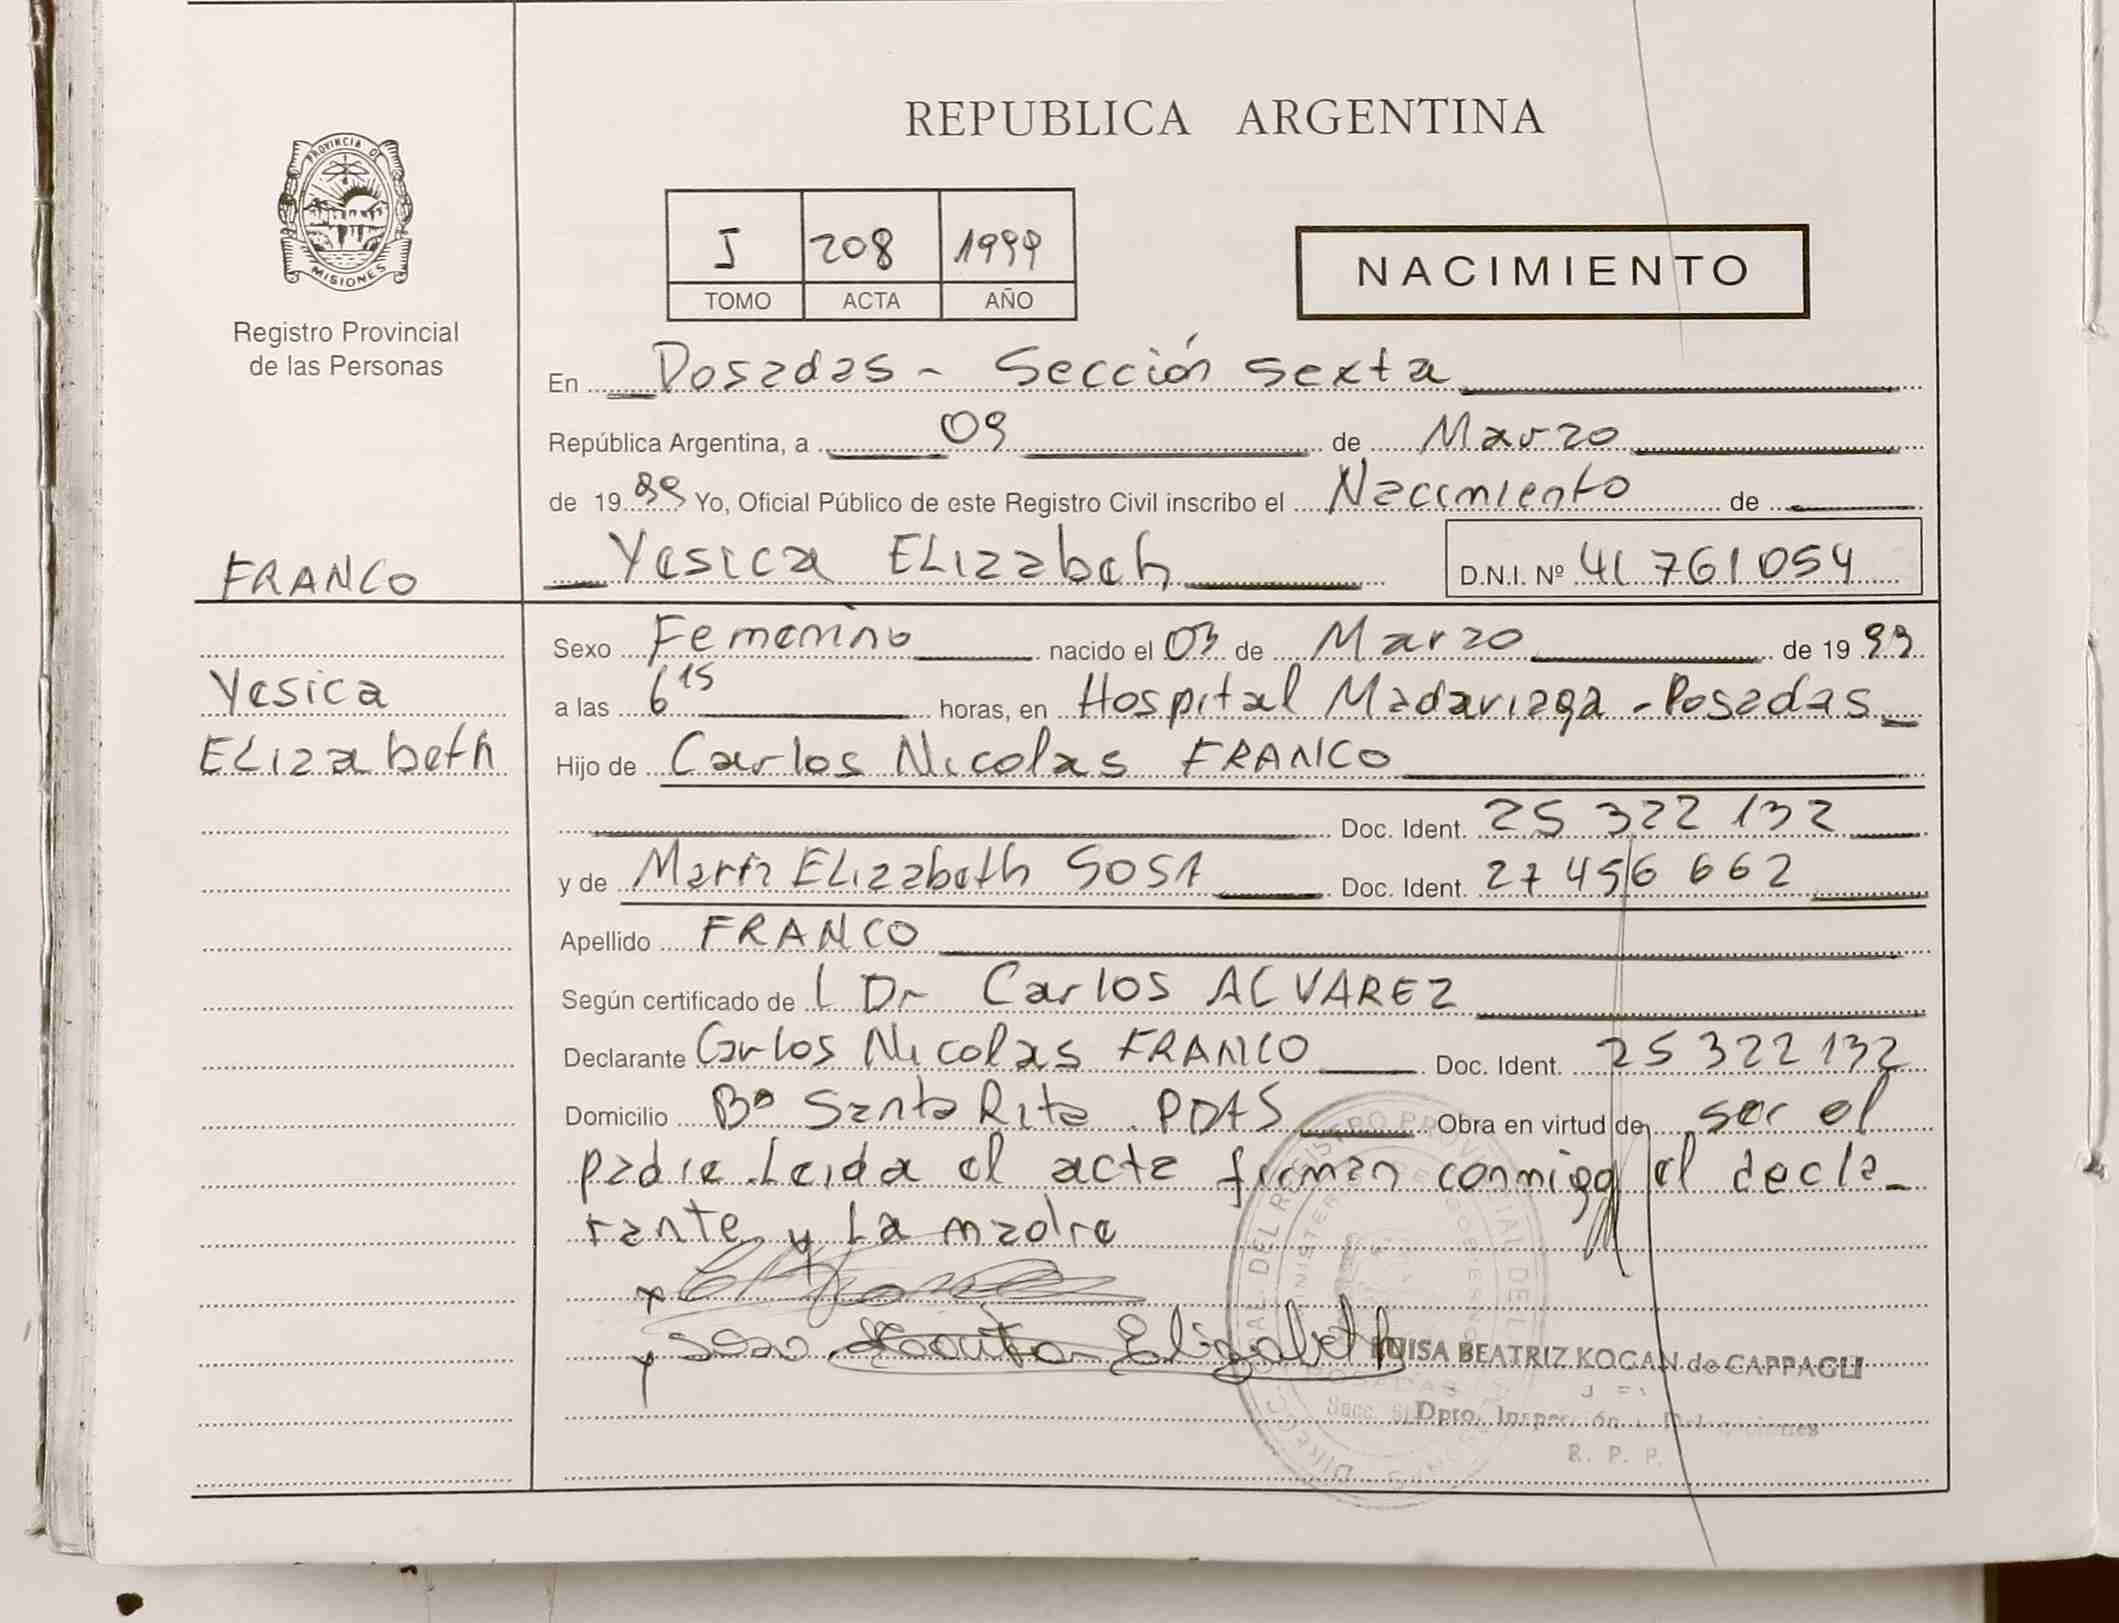 REPUBLICA ARGENTINA
PROVINCIA DE
MISIONES
Registro Provincial
de las Personas
I 208 1999
TOMO ACTA AÑO
NACIMIENTO
En Posadas - Sección Sexta
República Argentina, a 09 de Marzo
de 1999 Yo, Oficial Público de este Registro Civil inscribo el Nacimiento de
FRANCO
Yesica ELizabeh D.N.I. Nº 41 761 054
Yesica
ELizabeth
Sexo Femenino nacido el 03 de Marzo de 1999
a las 6 15 horas, en Hospital Madariaga - Posadas
Hijo de Carlos Nicolas FRANCO
Doc. Ident. 25 322 132
y de María ELizabeth SOSA Doc. Ident. 27 456 662
Apellido FRANCO
Según certificado de L Dr Carlos ALVAREZ
Declarante Carlos Nicolas FRANCO Doc. Ident. 25 322 132
Domicilio Bº Santa Rita. PDAS Obra en virtud de ser el
padre. Leida el acta firman conmigo el decla-
rante y La madre
x
x Sosa Elizabeth
LUISA BEATRIZ KOGAN de CAPPAGLI
Dpto. Inspección
R. P. P.